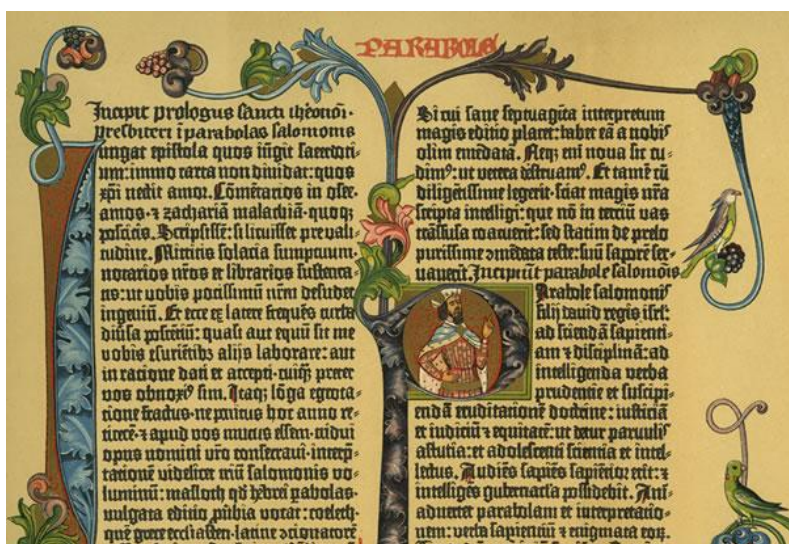 PARABOLE
Incipit prologus sancti iheronimi
presbiteri ī parabolas salomonis
Iungat epistola quos iūgit sacerdoti-
um: immo carta non dividat: quos
xp̄i nectit amor. Cōmētarios in osee.
amos. ⁊ zachariā malachiā. quoqꝫ
poscitis. Scripsissē: si licuisset pre vali-
tudine. Mittitis solacia sumptuum.
notarios nr̄os et librarios sustenta-
tis: ut vobis potissimū nr̄m desudet
ingeniū. Et ecce ex latere frequēs turba
diūsa poscētiū: quasi aut equū sit me
vobis esuriētibꝫ alijs laborare: aut
in ratione dati et accepti. cuiqꝫ preter
vos obnoxiꝰ sim. Itaqꝫ lōga egrota-
tione fractus. ne penitus hoc anno re-
ticerē. ⁊ apud vos mutus essem. tridui
opus nomini vr̄o consecravi. interp̄-
tationē videlicet triū salomonis vo-
luminū: masloth qd̄ hebrei ꝑabolas.
vulgata editio ꝓūbia vocat: coeleth.
quē grece eccl̄iasten. latine ↄcionatorē
Si cui sane septuagīta interpretum
magis editio placet: habet eā a nobis
olim emēdatā. Neqꝫ enī nova sic cu-
dimꝰ: ut vetera destruamꝰ. Et tamē cū
diligētissime legerit. sciat magis nr̄a
scripta intelligi: que nō in terciū vas
trāsfusa coacuerīt: sed statim de prelo
purissime ↄmēdata teste: suū saporē ser-
vaverīt. Incipiūt parabole salomōis
Parabole salomonis
filij david regis isrl̄:
ad sciendā sapienti-
am ⁊ disciplinā: ad
intelligenda verba
prudentie et suscipi-
endā eruditationē doctrine: iusticiā
et iudiciū ⁊ equitatē: ut detur parvulis
astutia: et adolescenti scientia et intel-
lectus. Audiēs sapiēs sapiētior erit: ⁊
intelligēs gubernacl̄a possidebit. Ani-
advertet parabolam et interpretatio-
nem: verba sapientiū ⁊ enigmata eoꝝ.